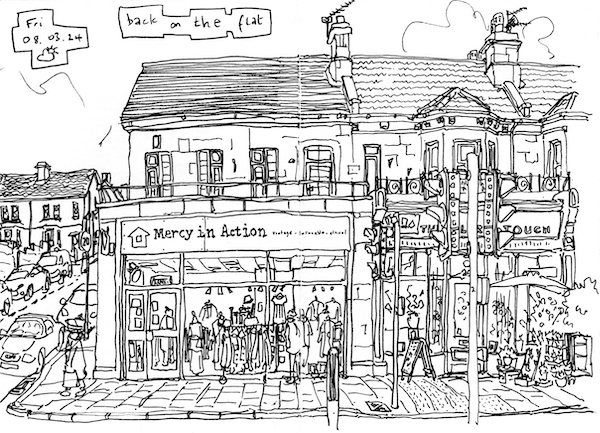 Fri
08.03.24
back on the flat
Mercy in Action
vintage
TOUCH